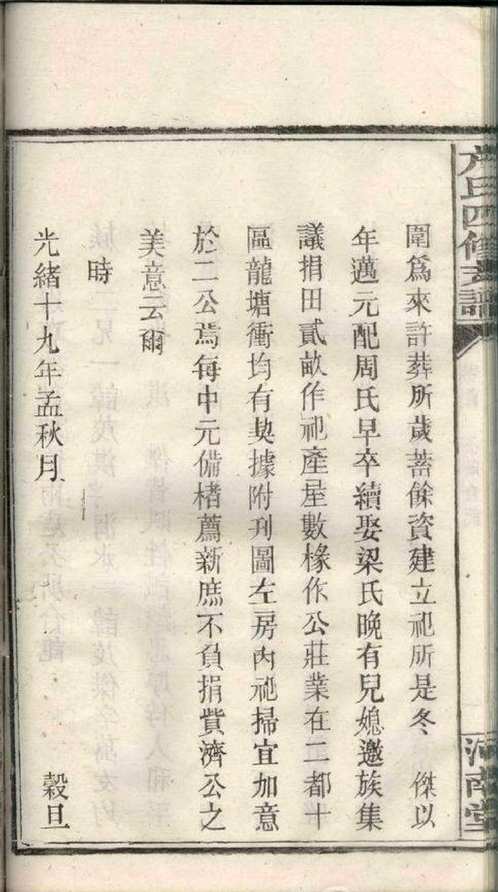 圍爲來許葬所歲蓄餘資建立祀所是冬　傑以
年邁元配周氏早卒續娶梁氏晚有兒媳邀族集
議捐田貳畝作祀產屋數椽作公莊業在二都十
區龍塘衝均有契據附刋圖左房內祀掃宜加意
於二公焉每中元備楮薦新庶不負捐貲濟公之
美意云爾
時
光緒十九年孟秋月　穀旦
氏四修支譜
河南堂